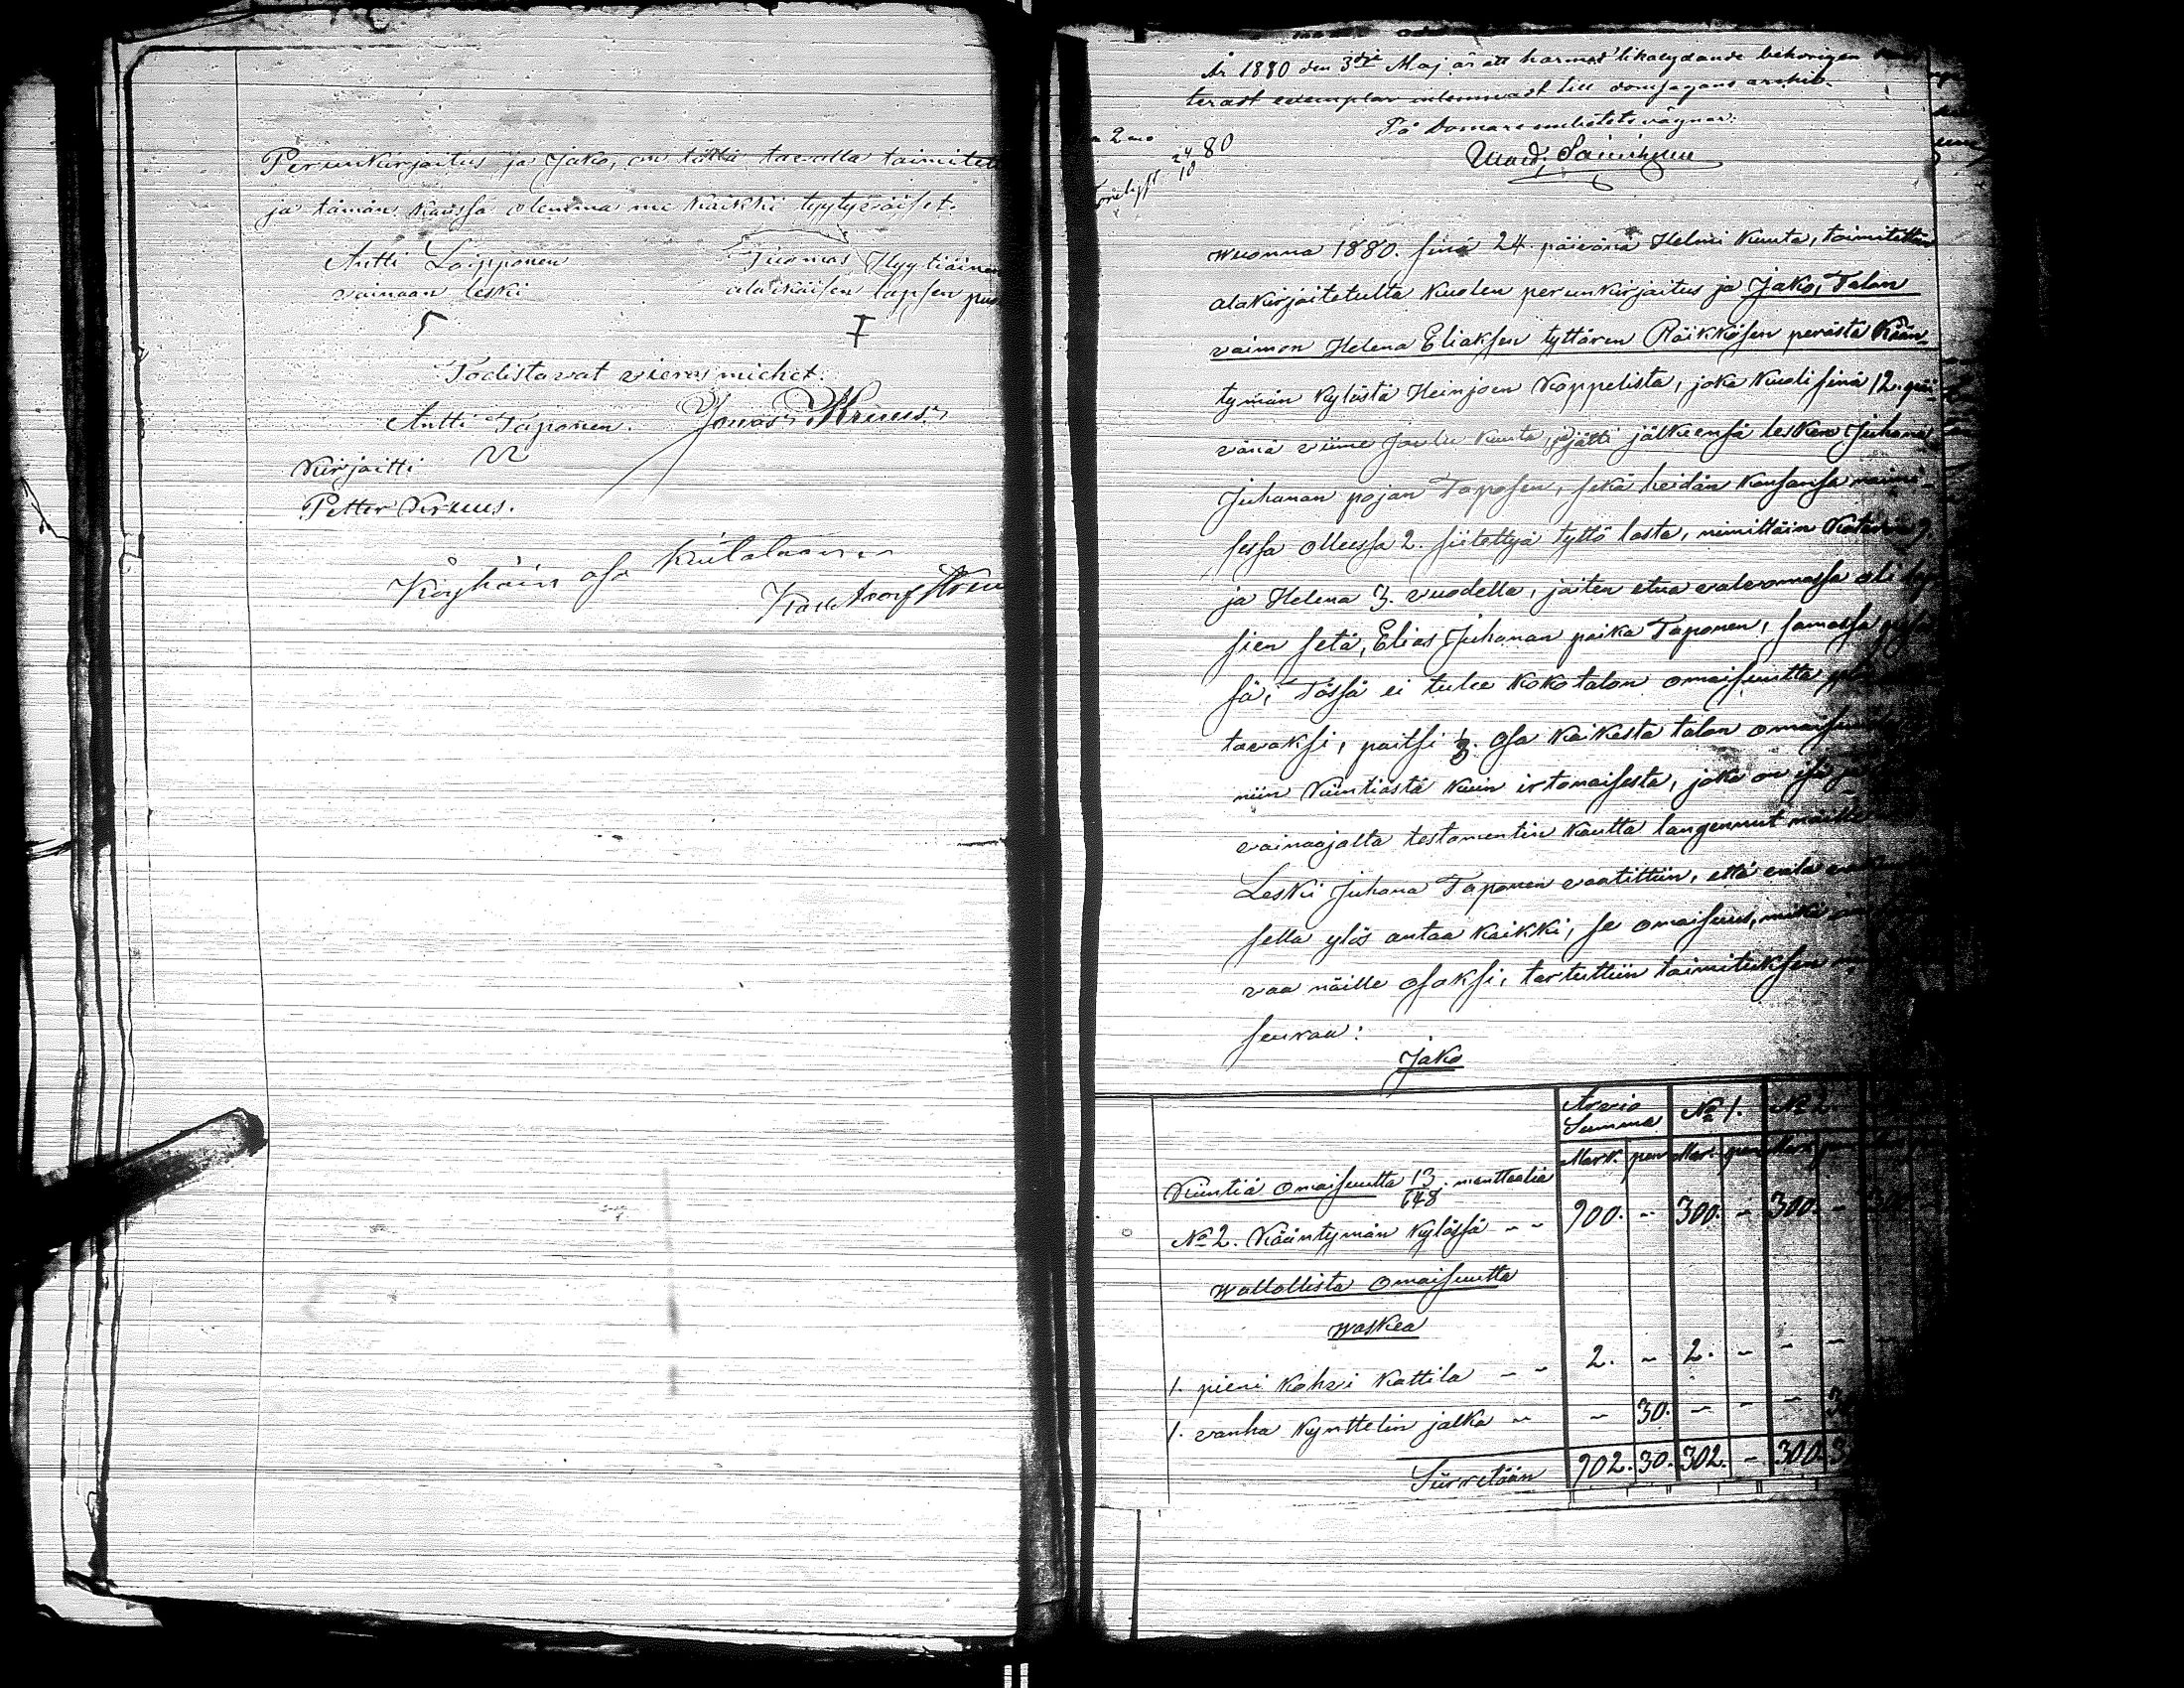 Perunkirjoitus ja Jako, on tällä tavalla toimitettu
ja tämän kanssa olemma me kaikki tyytyväiset.
Antti Loipponen
vainaan leski
Tuomas Hyytiäinen
alaikäisen lapsen
Todistavat vieras miehet.
Antti Taponen. Jonas Kruus.
Kirjoitti
Petter Kruus.
Köyhäin osa kuitataan
År 1880 den 3dje Maj är ett härmed likalydande behörigen
teradt exemplar inlemnadt till domsagans archiv.
På Domare embetets vägnar:
24 80
10
wuonna 1880. sinä 24. päivänä Helmi kuuta, toimitettiin
alakirjoitetulta kuolen perunkirjoitus ja Jako, Talon
vaimon Helena Eliaksen tyttären Räikkösen perästä Kään-
tymän kylästä Heinjoen Kappelista, joka kuoli sinä 12. päi-
vänä viime Joulu kuuta, ja jätti jälkeensä lesken Juhana
Juhanan pojan Taposen, sekä heidän kansansa naimi-
sessa ollessa 2. siitettyä tyttö lasta, nimittäin Katarina 9.
ja Helena 3. vuodella, joiten etua valvomassa oli lap-
sien setä, Elias Juhanan poika Taponen, samassa
sä; Tässä ei tule koko talon omaisuutta
tavaksi, paitsi 1/3. osa kaikesta talon
niin kiintiästä kuin irtonaisesta, joka on
vainaajalta testamentin kautta langennut näille
Leski Juhana Taponen vaatittiin, että vala
sella ylös antaa kaikki, se omaisuus, mikä
vaa näille osaksi, tartuttiin toimituksen
seuraa:
Jako
Arvio Summa № 1. № 2.
Mark. pen Mar. pen Mar.
Kiintiä omaisuutta 13/648 manttaalia
№ 2. Kääntymän kylässä - - 900. - 300. - 300. -
wallallista omaisuutta
waskea
1. pieni kahvi kattila - - 2. - 2. - - -
1. vanha kynttelin jalka - - 30. - - - 30
Siirretään 902. 30. 302. - 300. 30